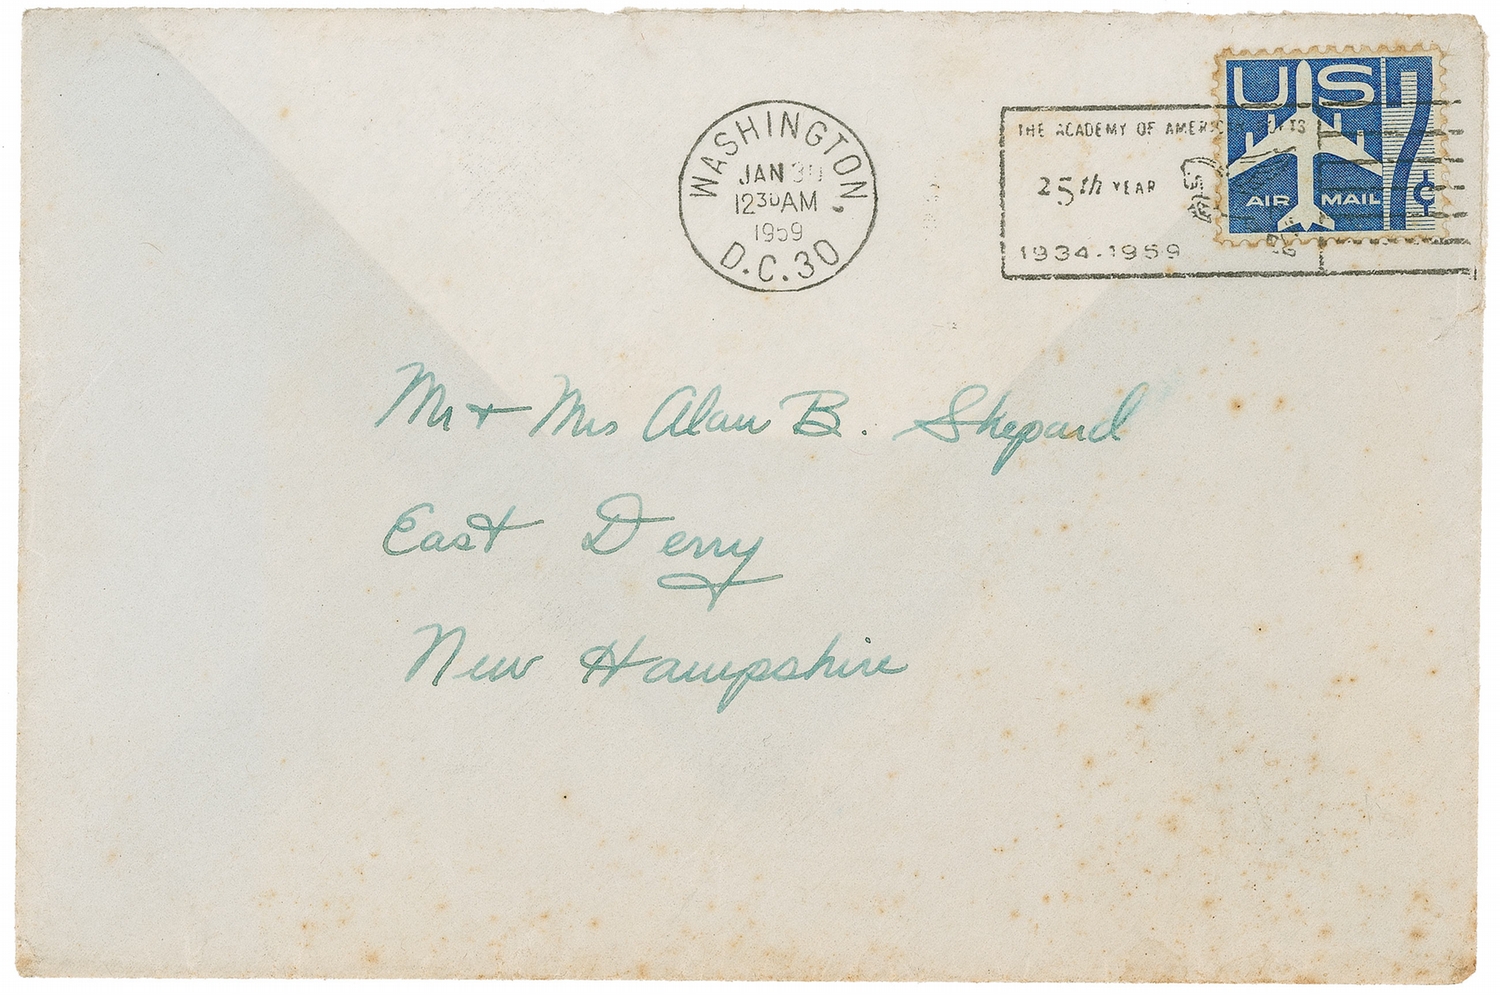 WASHINGTON,
JAN 30
12 30 AM
1959
D.C. 30
THE ACADEMY OF AMERICAN POETS
25th YEAR
1934-1959
US
7¢
AIR MAIL
Mr + Mrs Alan B. Shepard
East Derry
New Hampshire